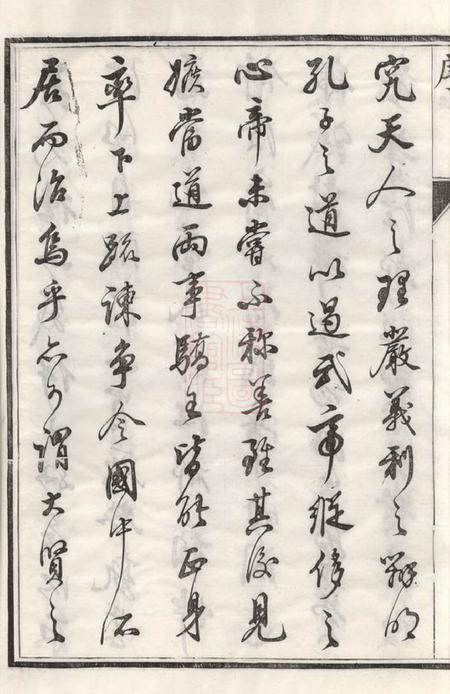 究天人之理嚴義利之辯明
孔子之道以遏武帝縱侈之
心帝未嘗不稱善雖其後見
嫉當道兩事驕王皆能正身
率下上疏諫爭令國中所
居而治烏乎亦可謂大賢之